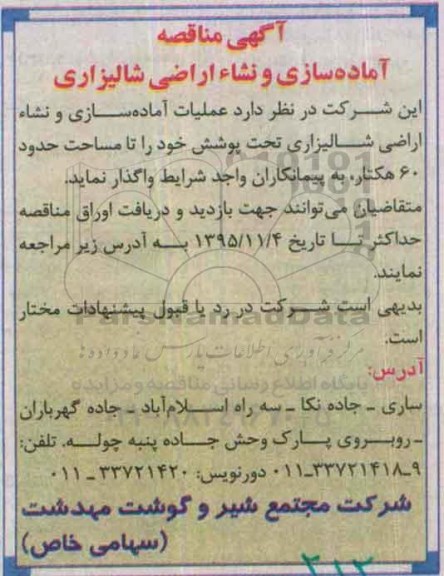 آگهی مناقصه
آماده‌سازی و نشاء اراضی شالیزاری
این شرکت در نظر دارد عملیات آماده‌سازی و نشاء
اراضی شالیزاری تحت پوشش خود را تا مساحت حدود
۶۰ هکتار، به پیمانکاران واجد شرایط واگذار نماید.
متقاضیان می‌توانند جهت بازدید و دریافت اوراق مناقصه
حداکثر تا تاریخ ۱۳۹۵/۱۱/۴ به آدرس زیر مراجعه
نمایند.
بدیهی است شرکت در رد یا قبول پیشنهادات مختار
است.
ParsNamadData
آدرس:
پایگاه اطلاع رسانی مناقصه و مزایده
ساری ـ جاده نکا ـ سه راه اسلام‌آباد ـ جاده گهرباران
ـ روبروی پارک وحش جاده پنبه چوله. تلفن:
۹ـ۳۳۷۲۱۴۱۸ـ۰۱۱ دورنویس: ۳۳۷۲۱۴۲۰ ـ ۰۱۱
شرکت مجتمع شیر و گوشت مهدشت
(سهامی خاص)
۲۱۳